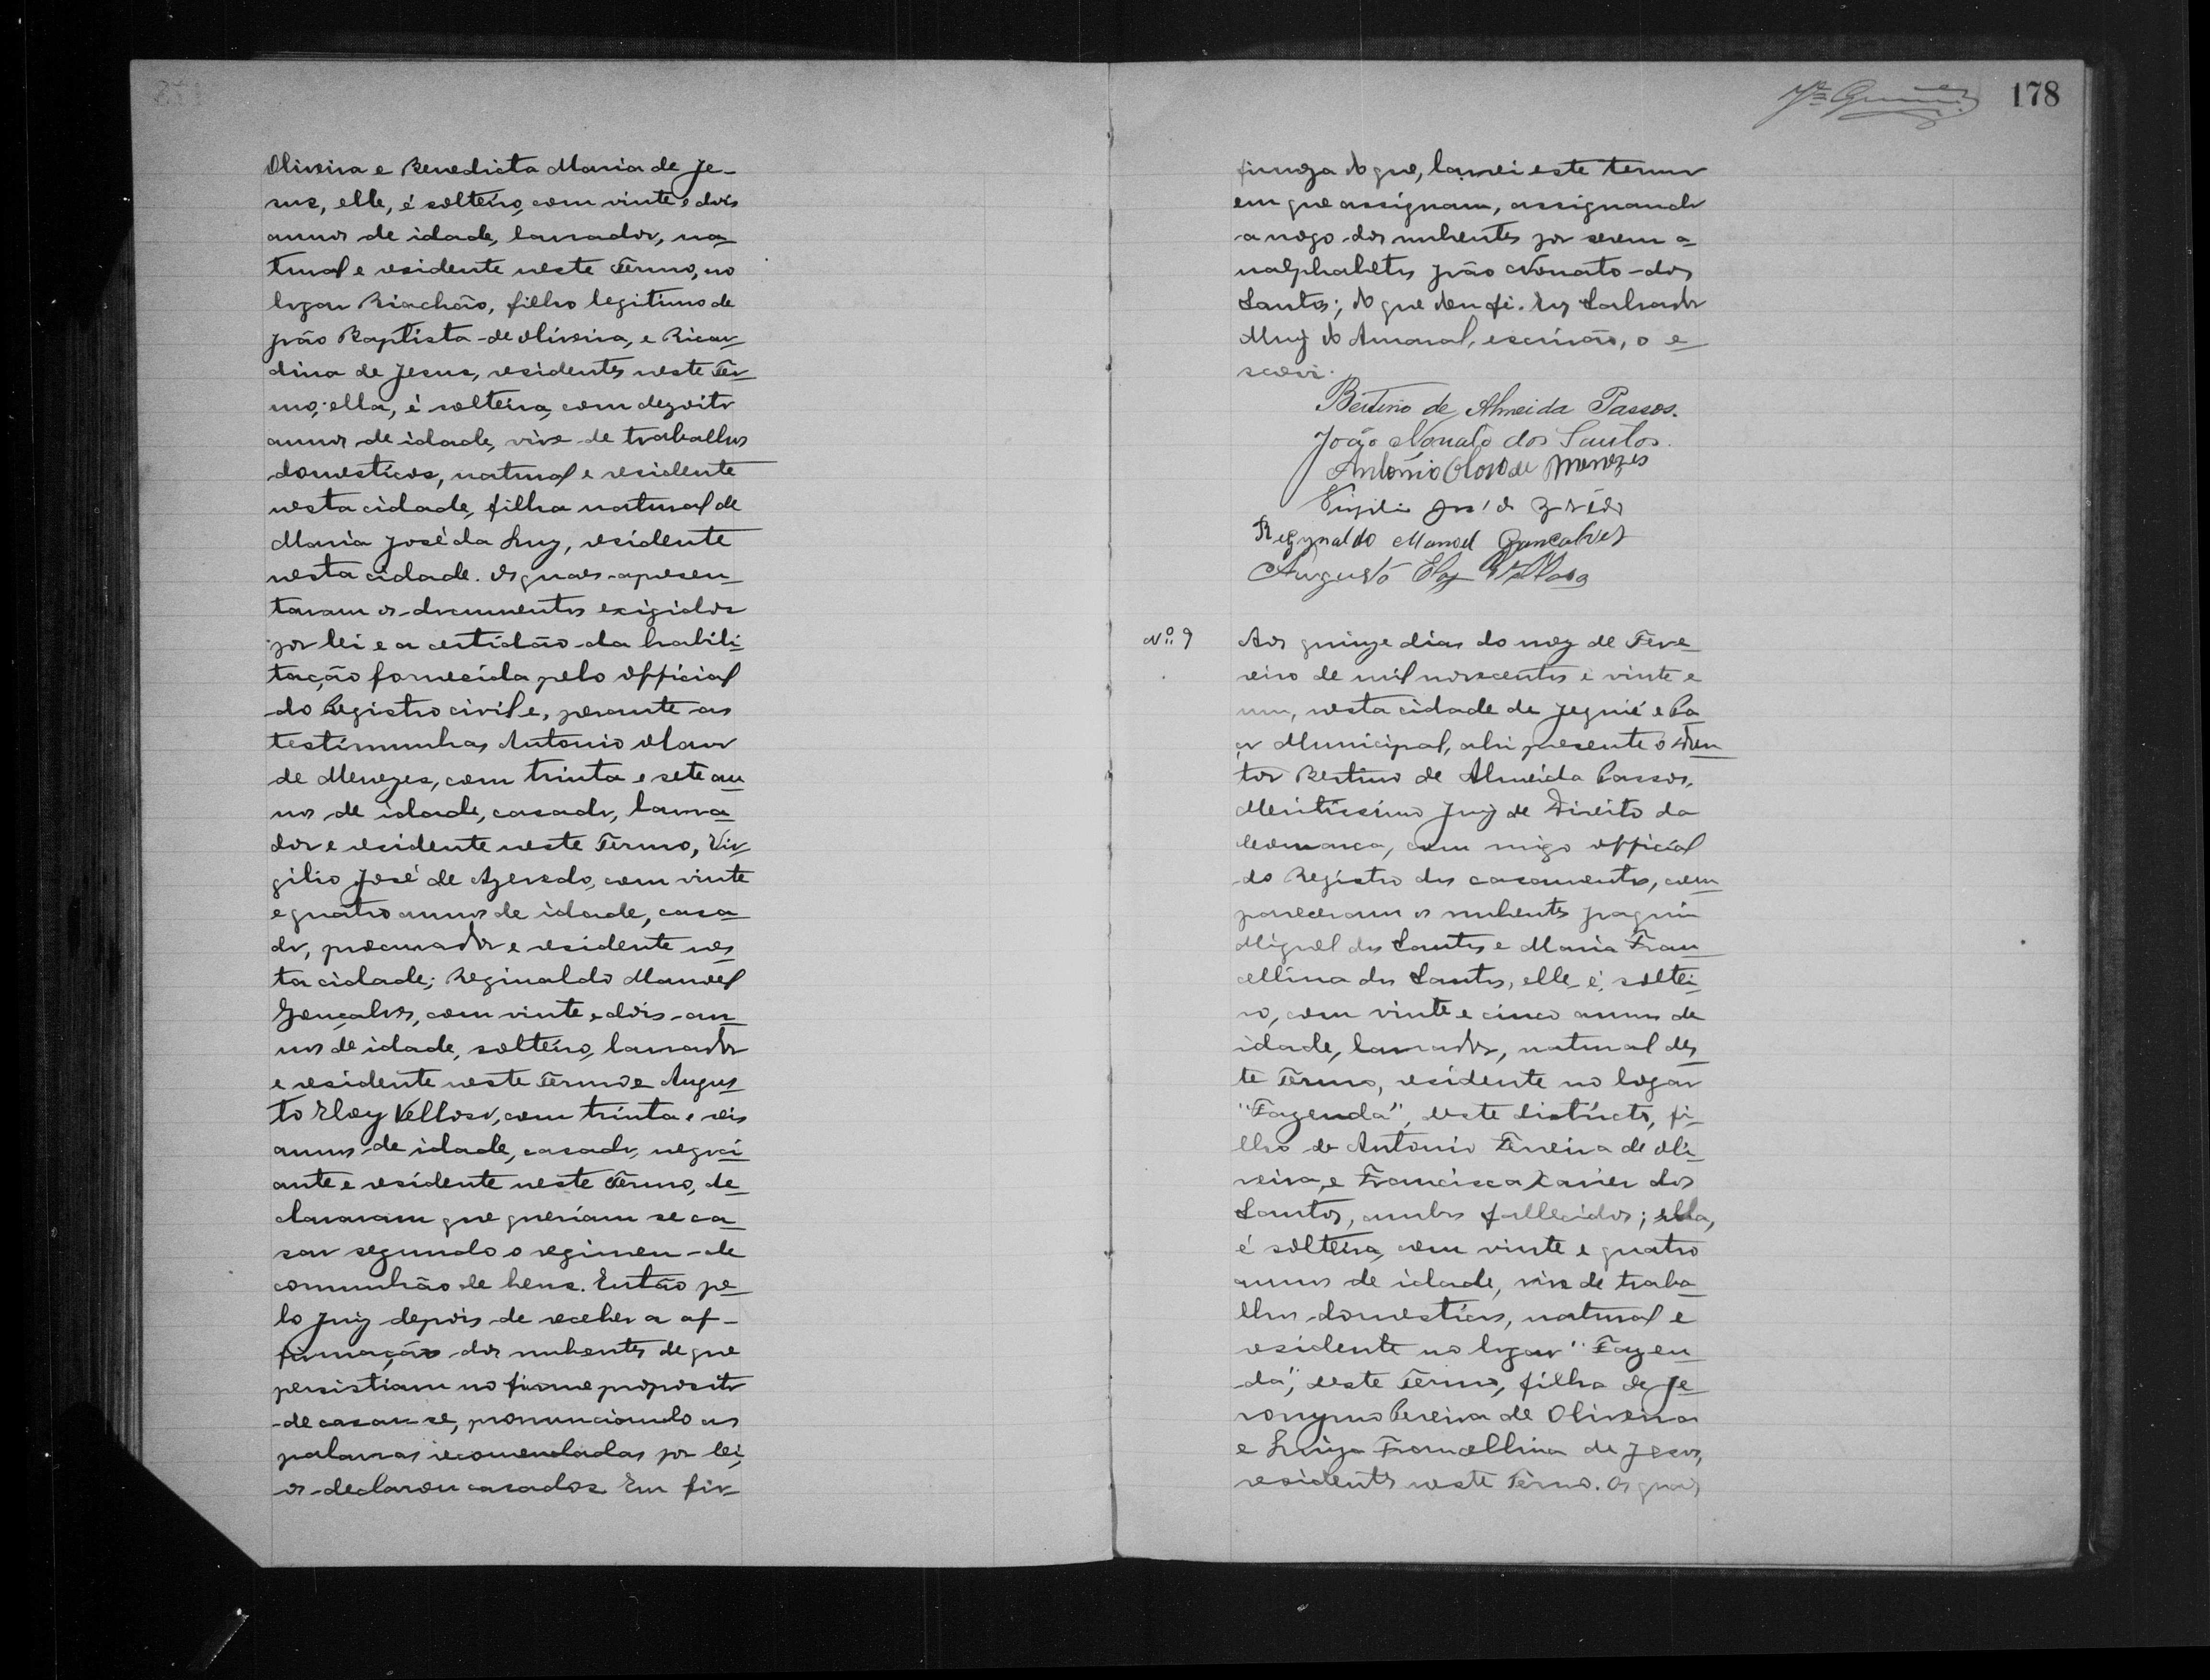 Oliveira e Benedicta Maria de Je-
sus, elle, é solteiro, com vinte e dois
annos de idade, lavrador, na-
tural e residente neste Termo, no
logar Riachão, filho legitimo de
João Baptista de Oliveira, e Ricar-
dina de Jesus, residentes neste Ter-
mo; ella, é solteira, com dezoito
annos de idade, vive de trabalhos
domesticos, natural e residente
nesta cidade, filha natural de
Maria José da Luz, residente
nesta cidade. Os quaes apresen-
taram os documentos exigidos
por lei e a certidão da habili-
tação fornecida pelo official
do Registro civil e, perante as
testimunhas Antonio Olavo
de Menezes, com trinta e sete an-
nos de idade, casado, lavra-
dor e residente neste Termo, Vir-
gilio José de Azevedo, com vinte
e quatro annos de idade, casa-
do, procurador e residente nes-
ta cidade; Reginaldo Manoel
Gonçalves, com vinte e dois an-
nos de idade, solteiro, lavrador
e residente neste Termo e Augus-
to Eloy Velloso, com trinta e seis
annos de idade, casado, negoci-
ante e residente neste Termo, de-
clararam que queriam se ca-
sar segundo o regimen de
comunhão de bens. Então pe-
lo Juiz depois de receber a af-
firmação dos nubentes de que
persistiam no firme proposito
de casar-se, pronunciando as
palavras recomendadas por lei,
os declarou casados. Em fir-
178
fimeza do que, lavrei este termo
em que assignam, assignando
a rogo dos nubentes por serem a-
nalphabetos João Nonato dos
Santos; do que dou fé. Eu Salvador
Muiz do Amaral, escrivão, o e-
screvi.
Bertino de Almeida Passos.
João Nonato dos Santos.
Antonio Olavo de Menezes
Virgilio José de Azevêdo
Regynaldo Manoel Gonçalves
Augusto Eloy Velloso
Nº. 9
Aos quinze dias do mez de Feve-
reiro de mil novecentos e vinte e
um, nesta cidade de Jequié e Pa-
ço Municipal, ahi presente o Dou-
tor Bertino de Almeida Passos,
Meritissimo Juiz de Direito da
Comarca, com migo official
do Registro dos casamentos, com-
pareceram os nubentes Joaquim
Miguel dos Santos e Maria Fran-
cellina dos Santos, elle é soltei-
ro, com vinte e cinco annos de
idade, lavrador, natural des-
te Termo, residente no logar
"Fazenda", deste districto, fi-
lho de Antonio Ferreira de Oli-
veira, e Francisca Xavier dos
Santos, ambos fallecidos; ella,
é solteira, com vinte e quatro
annos de idade, vive de traba-
lhos domesticos, natural e
residente no logar "Fazen-
da", deste Termo, filha de Je-
ronymo Pereira de Oliveira
e Luiza Francellina de Jesus,
residentes neste Termo. Os quaes